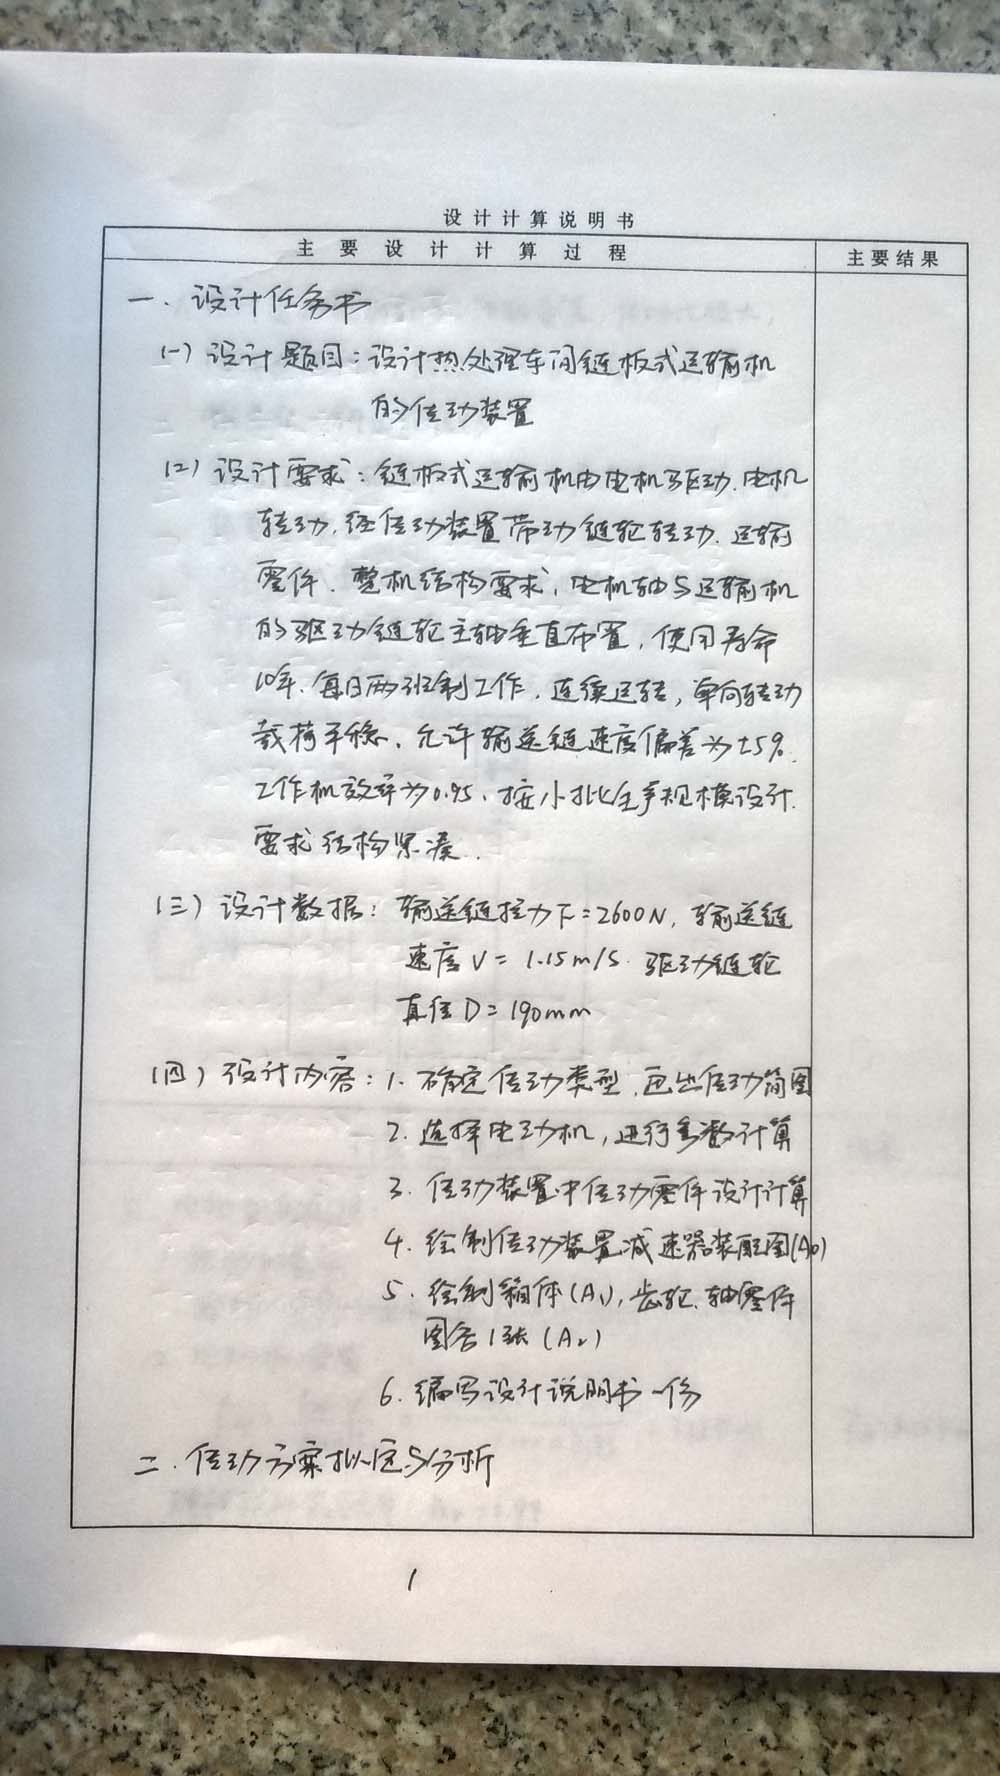 设计计算说明书
主要设计计算过程
主要结果
一.设计任务书
(一)设计题目:设计热处理车间链板式运输机
的传动装置
(二)设计要求:链板式运输机由电机驱动.电机
转动,经传动装置带动链轮转动.运输
零件.整机结构要求,电机轴与运输机
的驱动链轮主轴垂直布置,使用寿命
10年.每日两班制工作.连续运转,单向转动
载荷平稳、允许输送链速度偏差为±5%.
工作机效率为0.95.按小批生产规模设计.
要求结构紧凑.
(三)设计数据:输送链拉力F=2600N,输送链
速度V=1.15m/s.驱动链轮
直径D=190mm
(四)设计内容:1.确定传动类型,画出传动简图
2.选择电动机,进行参数计算
3.传动装置中传动零件设计计算
4.绘制传动装置减速器装配图(A0)
5.绘制箱体(A1),齿轮、轴零件
图各1张(A2)
6.编写设计说明书一份
二.传动方案拟定与分析
1